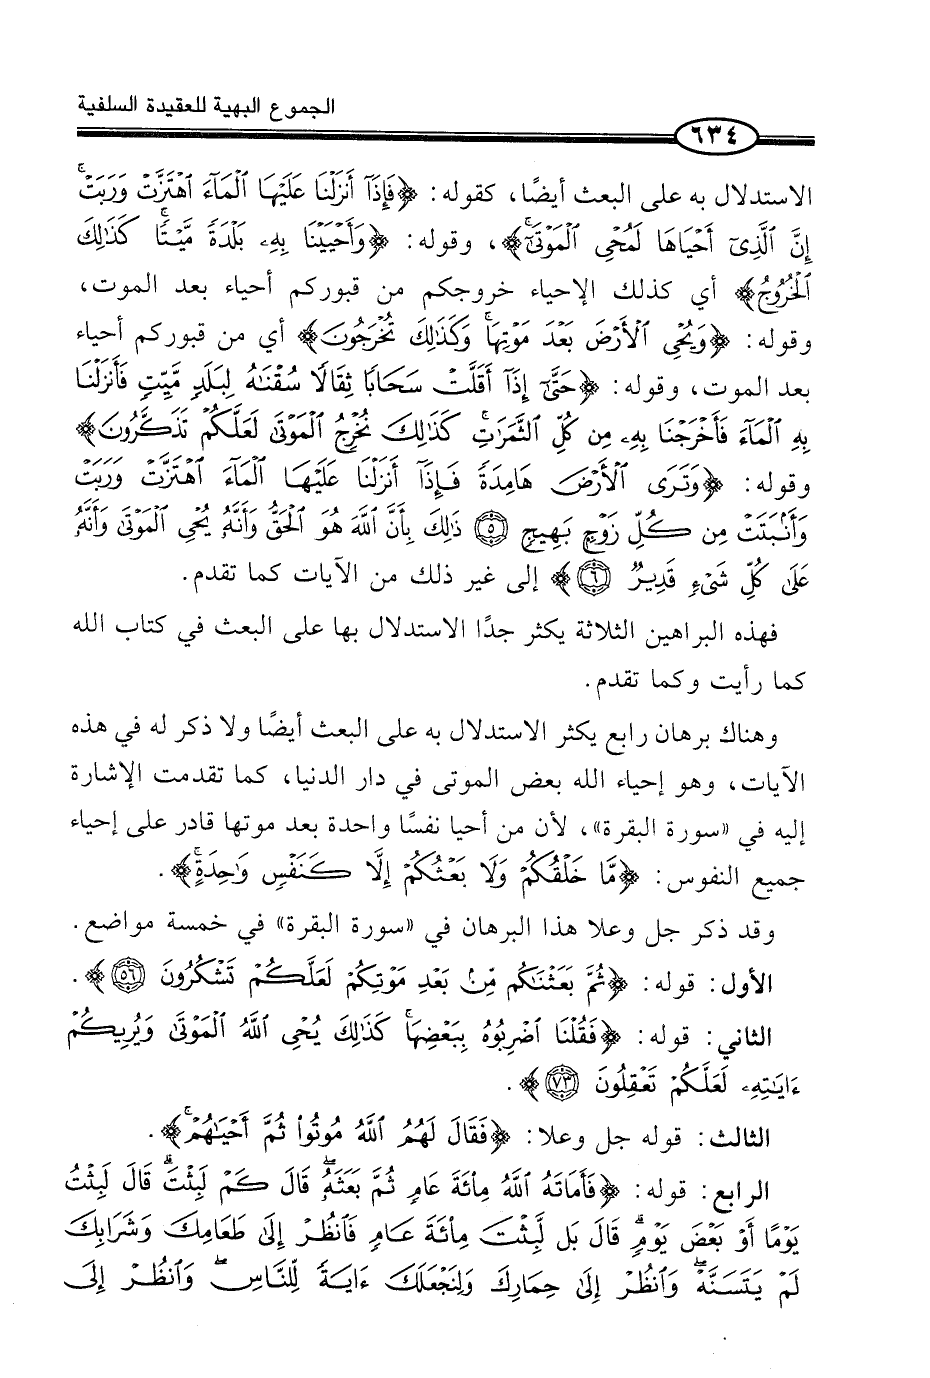 الجموع البهية للعقيدة السلفية
٦٣٤
الاستدلال به على البعث أيضًا، كقوله: ﴿فَإِذَآ أَنزَلۡنَا عَلَيۡهَا ٱلۡمَآءَ ٱهۡتَزَّتۡ وَرَبَتۡۚ
إِنَّ ٱلَّذِيٓ أَحۡيَاهَا لَمُحۡيِ ٱلۡمَوۡتَىٰٓۚ﴾، وقوله: ﴿وَأَحۡيَيۡنَا بِهِۦ بَلۡدَةٗ مَّيۡتٗاۚ كَذَٰلِكَ
ٱلۡخُرُوجُ﴾ أي كذلك الإحياء خروجكم من قبوركم أحياء بعد الموت،
وقوله: ﴿وَيُحۡيِ ٱلۡأَرۡضَ بَعۡدَ مَوۡتِهَاۚ وَكَذَٰلِكَ تُخۡرَجُونَ﴾ أي من قبوركم أحياء
بعد الموت، وقوله: ﴿حَتَّىٰٓ إِذَآ أَقَلَّتۡ سَحَابٗا ثِقَالٗا سُقۡنَٰهُ لِبَلَدٖ مَّيِّتٖ فَأَنزَلۡنَا
بِهِ ٱلۡمَآءَ فَأَخۡرَجۡنَا بِهِۦ مِن كُلِّ ٱلثَّمَرَٰتِۚ كَذَٰلِكَ نُخۡرِجُ ٱلۡمَوۡتَىٰ لَعَلَّكُمۡ تَذَكَّرُونَ﴾
وقوله: ﴿وَتَرَى ٱلۡأَرۡضَ هَامِدَةٗ فَإِذَآ أَنزَلۡنَا عَلَيۡهَا ٱلۡمَآءَ ٱهۡتَزَّتۡ وَرَبَتۡ
وَأَنۢبَتَتۡ مِن كُلِّ زَوۡجِۭ بَهِيجٖ ٥ ذَٰلِكَ بِأَنَّ ٱللَّهَ هُوَ ٱلۡحَقُّ وَأَنَّهُۥ يُحۡيِ ٱلۡمَوۡتَىٰ وَأَنَّهُۥ
عَلَىٰ كُلِّ شَيۡءٖ قَدِيرٞ ٦﴾ إلى غير ذلك من الآيات كما تقدم.
فهذه البراهين الثلاثة يكثر جدًا الاستدلال بها على البعث في كتاب الله
كما رأيت وكما تقدم.
وهناك برهان رابع يكثر الاستدلال به على البعث أيضًا ولا ذكر له في هذه
الآيات، وهو إحياء الله بعض الموتى في دار الدنيا، كما تقدمت الإشارة
إليه في «سورة البقرة»، لأن من أحيا نفسًا واحدة بعد موتها قادر على إحياء
جميع النفوس: ﴿مَّا خَلۡقُكُمۡ وَلَا بَعۡثُكُمۡ إِلَّا كَنَفۡسٖ وَٰحِدَةٍۚ﴾.
وقد ذكر جل وعلا هذا البرهان في «سورة البقرة» في خمسة مواضع.
الأول: قوله: ﴿ثُمَّ بَعَثۡنَٰكُم مِّنۢ بَعۡدِ مَوۡتِكُمۡ لَعَلَّكُمۡ تَشۡكُرُونَ ٥٦﴾.
الثاني: قوله: ﴿فَقُلۡنَا ٱضۡرِبُوهُ بِبَعۡضِهَاۚ كَذَٰلِكَ يُحۡيِ ٱللَّهُ ٱلۡمَوۡتَىٰ وَيُرِيكُمۡ
ءَايَٰتِهِۦ لَعَلَّكُمۡ تَعۡقِلُونَ ٧٣﴾.
الثالث: قوله جل وعلا: ﴿فَقَالَ لَهُمُ ٱللَّهُ مُوتُواْ ثُمَّ أَحۡيَٰهُمۡۚ﴾.
الرابع: قوله: ﴿فَأَمَاتَهُ ٱللَّهُ مِاْئَةَ عَامٖ ثُمَّ بَعَثَهُۥۖ قَالَ كَمۡ لَبِثۡتَۖ قَالَ لَبِثۡتُ
يَوۡمًا أَوۡ بَعۡضَ يَوۡمٖۖ قَالَ بَل لَّبِثۡتَ مِاْئَةَ عَامٖ فَٱنظُرۡ إِلَىٰ طَعَامِكَ وَشَرَابِكَ
لَمۡ يَتَسَنَّهۡۖ وَٱنظُرۡ إِلَىٰ حِمَارِكَ وَلِنَجۡعَلَكَ ءَايَةٗ لِّلنَّاسِۖ وَٱنظُرۡ إِلَى